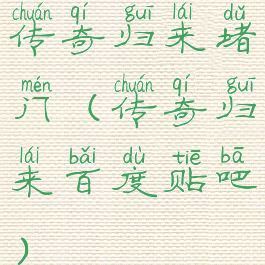 chuán qí guī lái dǔ
传奇归来堵
mén chuán qí guī
门（传奇归
lái bǎi dù tiē bā
来百度贴吧
）